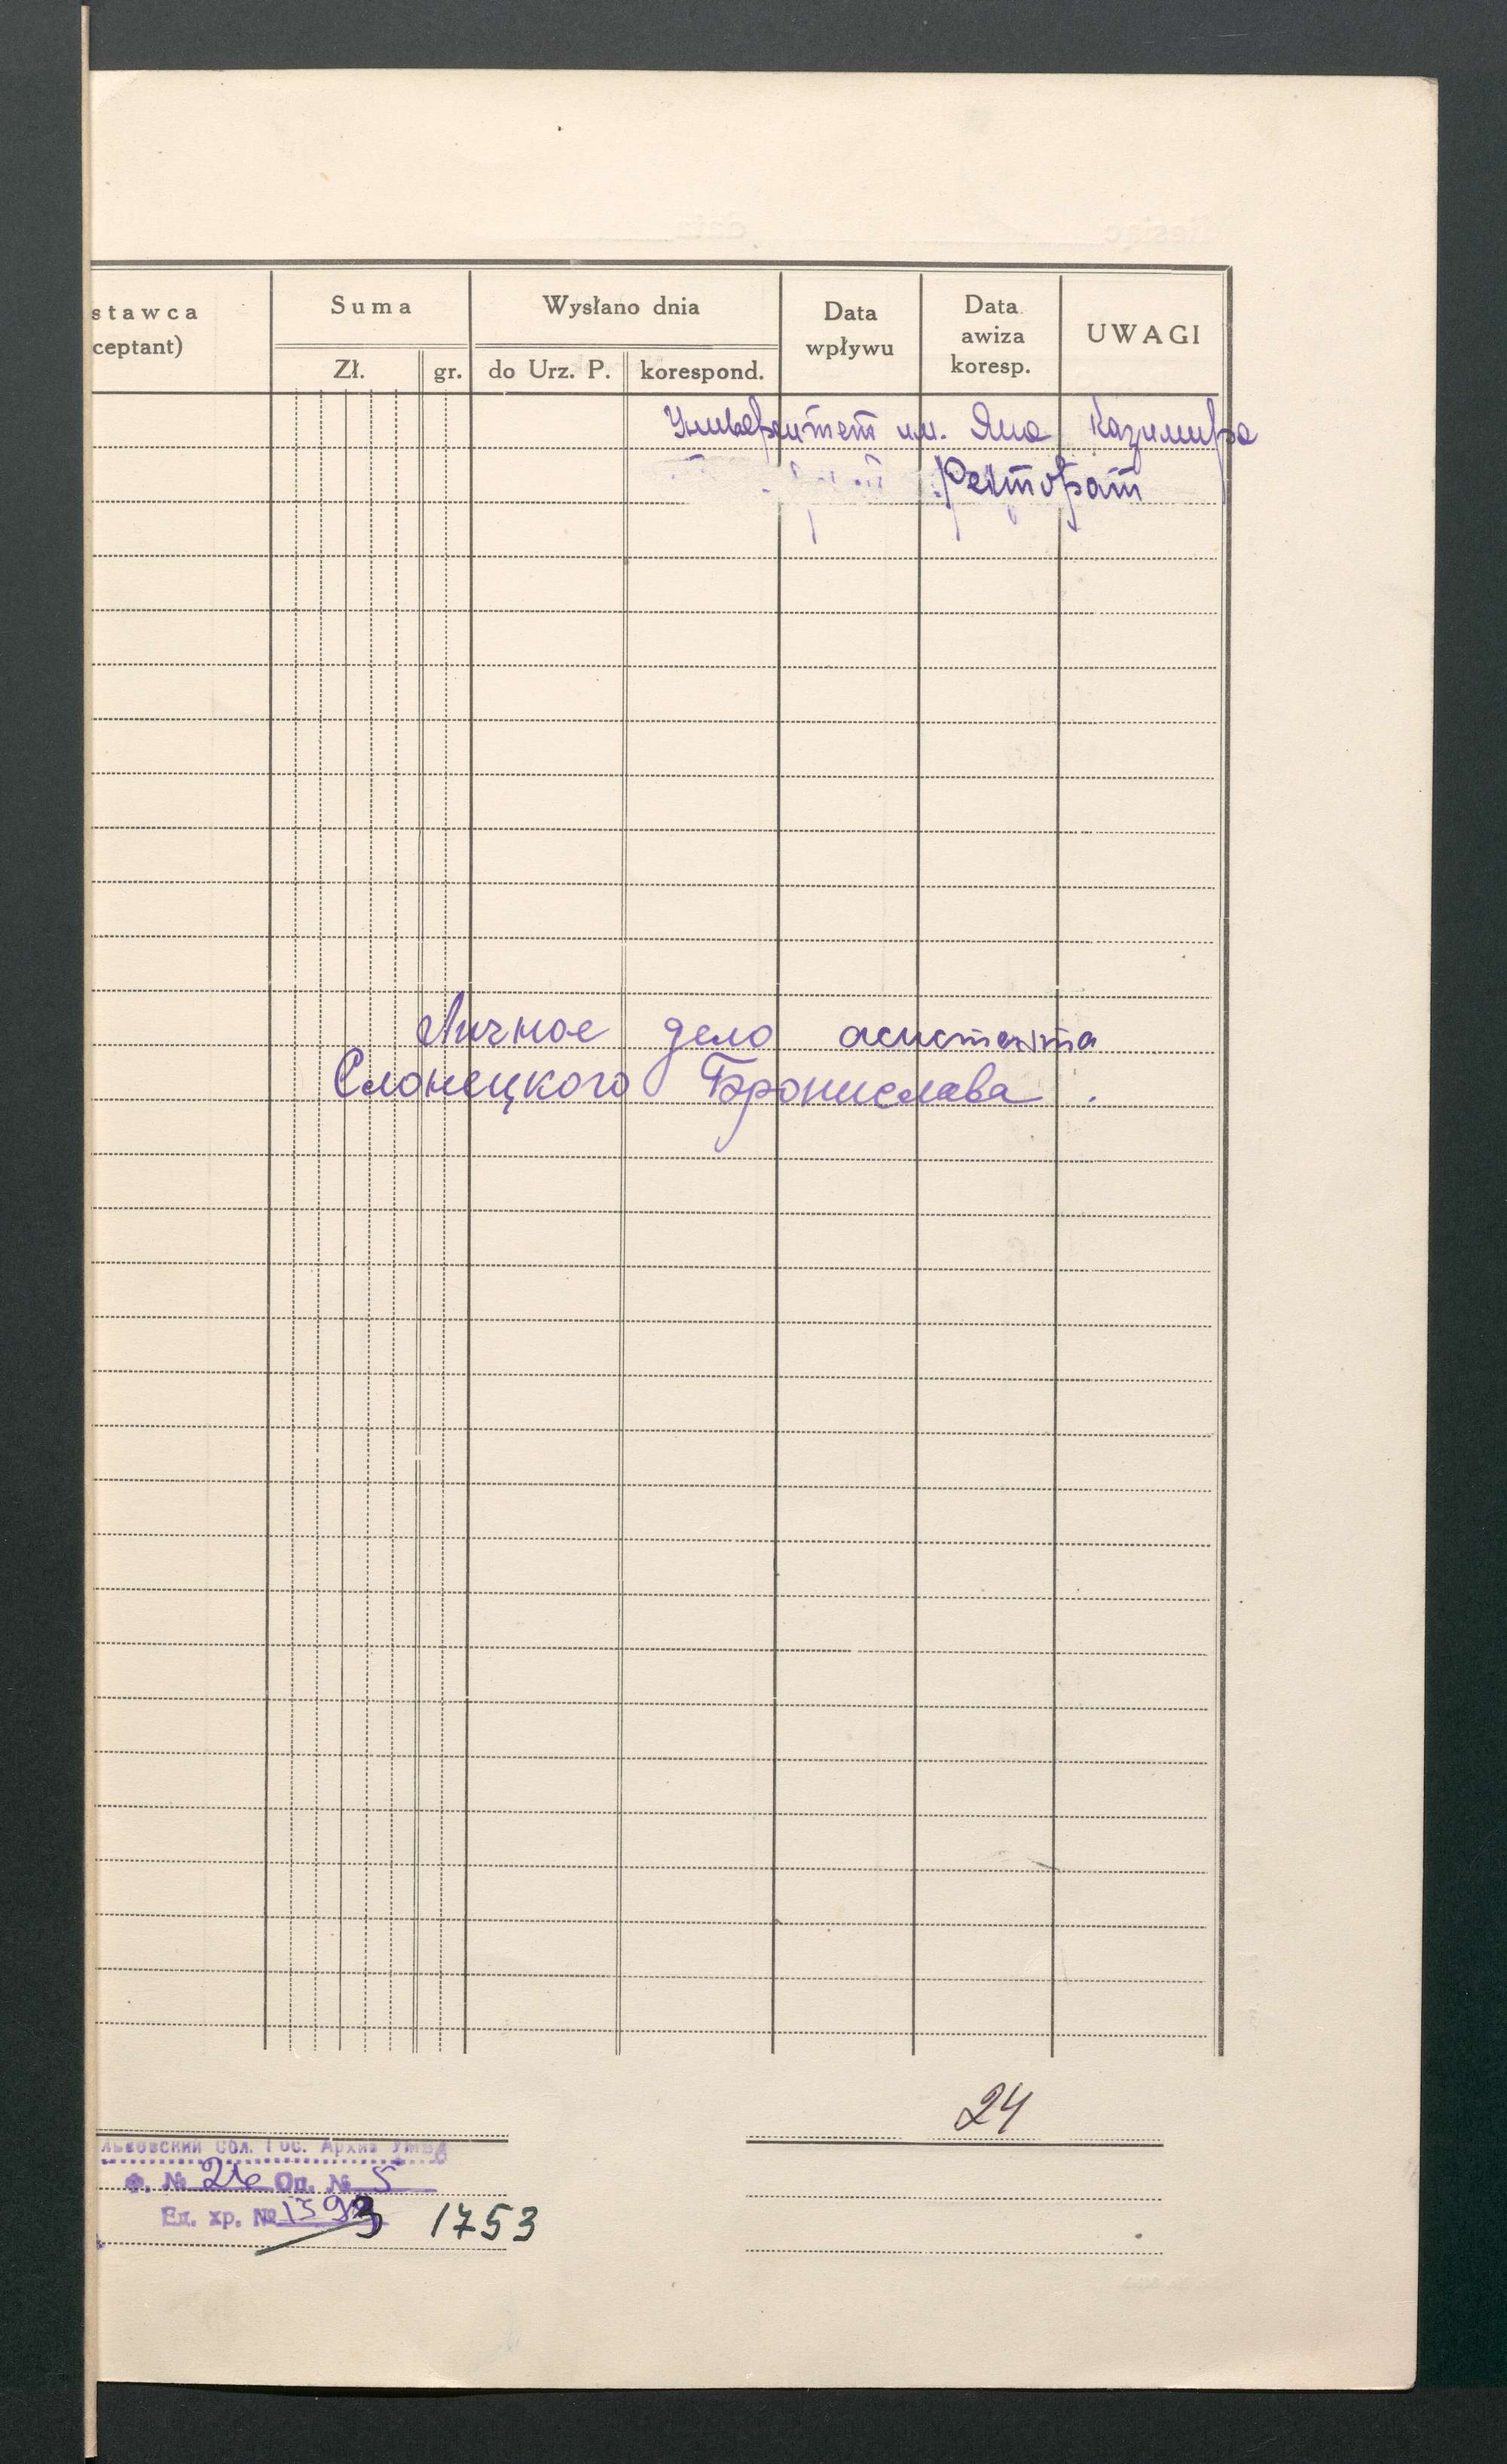 stawca Suma Wysłano dnia Data wpływu Data awiza koresp. UWAGI
ceptant) Zł. gr. do Urz. P. korespond.
Университет им. Яна Казимира
Ректорат
Личное дело асистента
Слонецкого Бронислава.
24
львовский Обл. Гос. Архив
Ф. № 26 Оп. № 5
Ед. хр. № 1593 1753